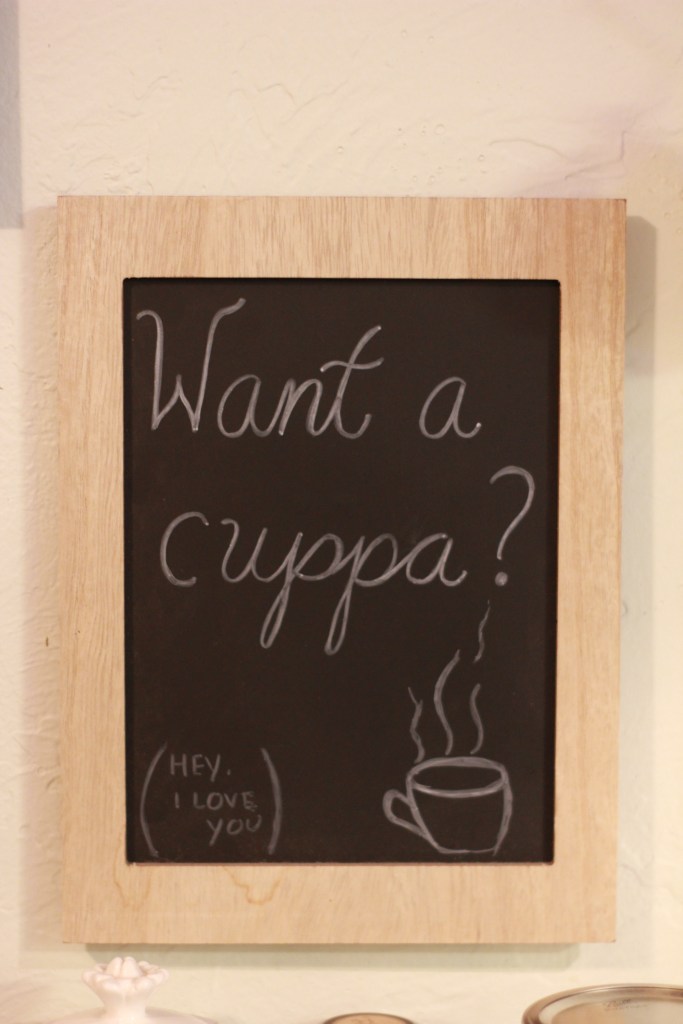 Want a
cuppa?
(HEY.
I LOVE
YOU)